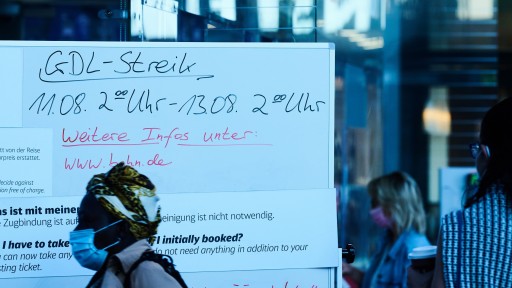 GDL-Streik
11.08. 2⁰⁰ Uhr - 13.08. 2⁰⁰ Uhr
Weitere Infos unter:
www.bahn.de
tt von der Reise
rpreis erstattet.
decide against
ion free of charge.
ss ist mit meiner
Zugbindung ist auf
einigung ist nicht notwendig.
I have to take
I initially booked?
can now take any
do not need anything in addition to your
sting ticket.